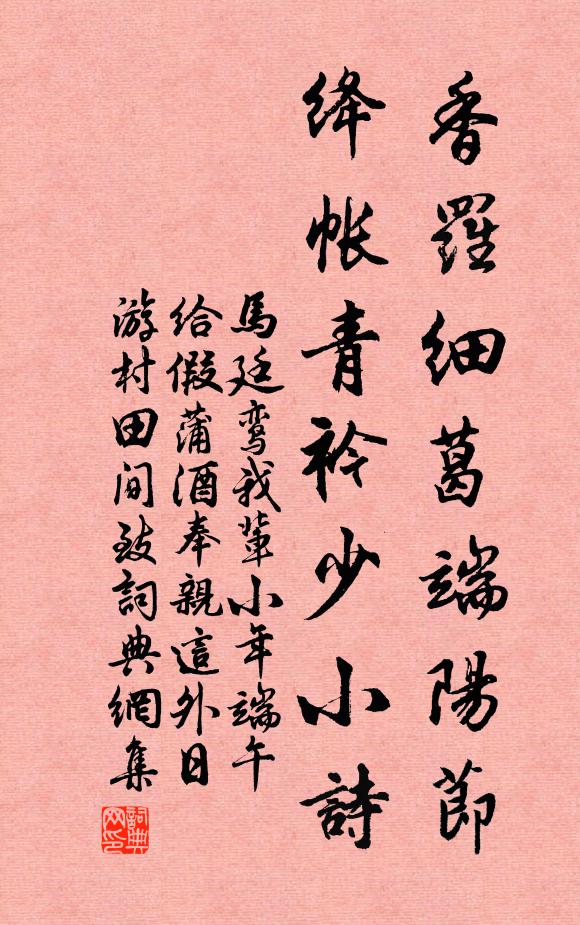 香羅細葛端陽節
絳帳青衿少小詩
馬廷鸞我輩小年端午
給假蒲酒奉親這外日
游村田間致詞典網集
詞典网印